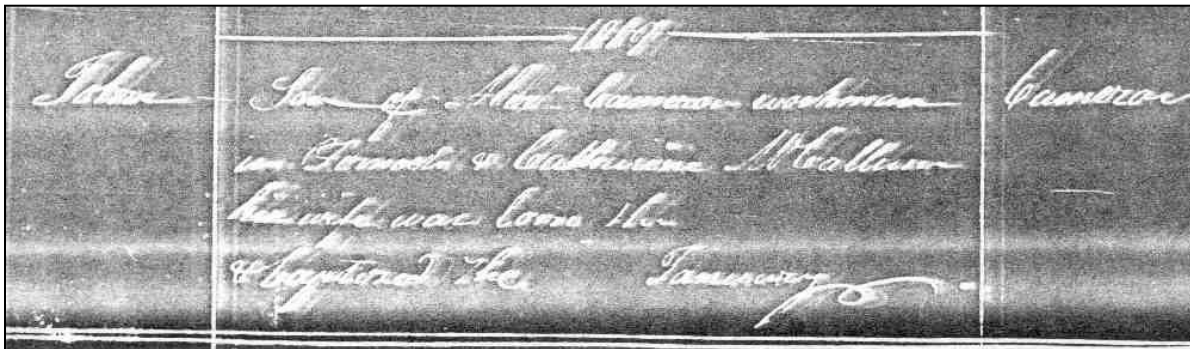 John Son of Alexr Cameron workman Cameron
in & Catherine McCallum
his wife was born the
& baptized the January